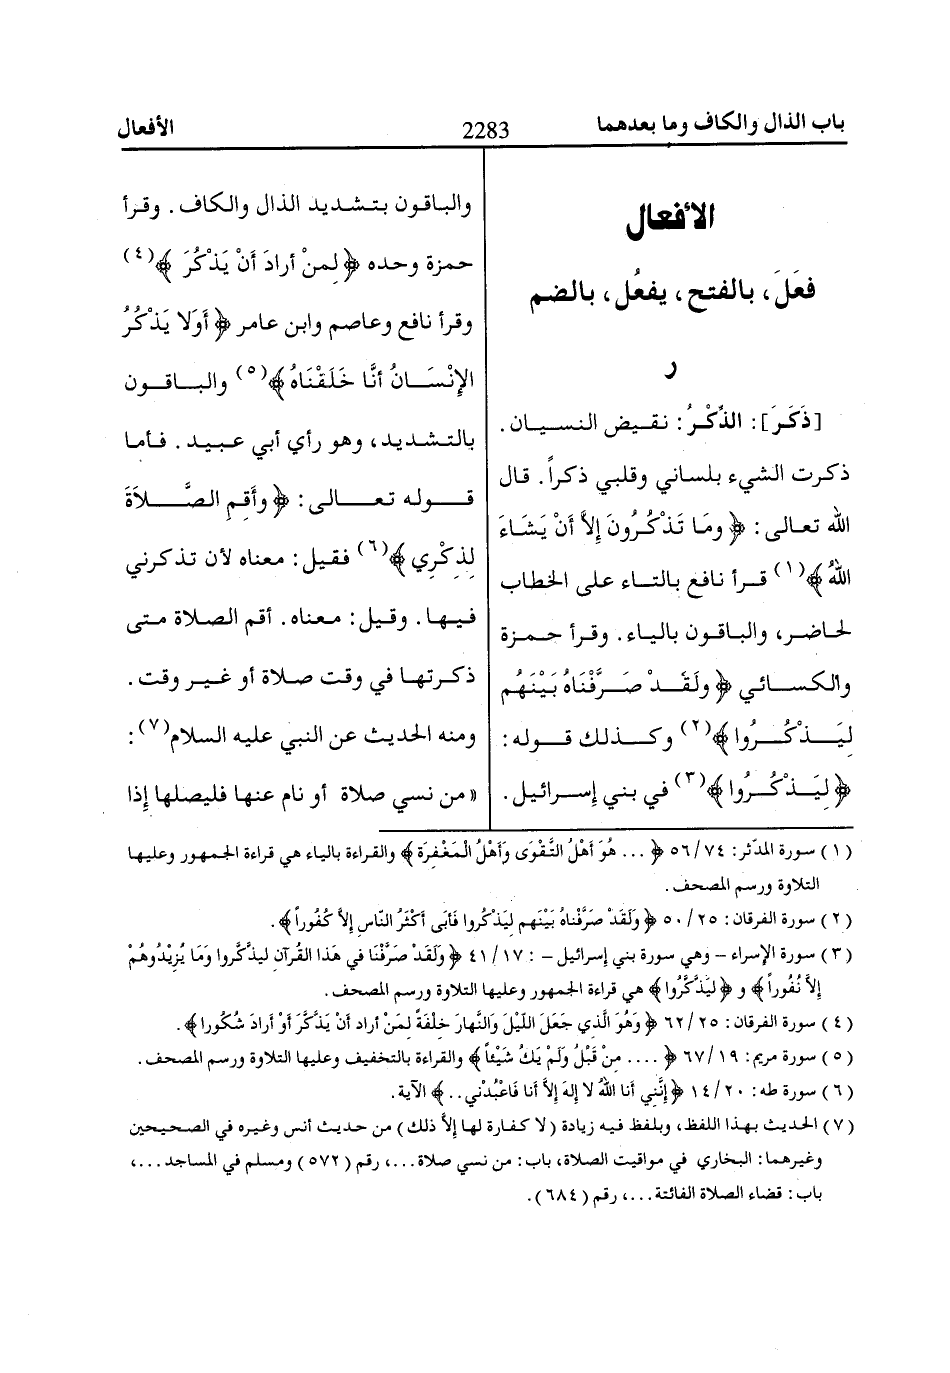 باب الذال والكاف وما بعدهما
2283
الأفعال
الأفعال
فعَلَ، بالفتح، يفعُل، بالضم
ر
[ذَكَرَ]: الذِّكْرُ: نقيض النسيان.
ذكرت الشيء بلساني وقلبي ذكراً. قال
الله تعالى: ﴿وما تَذْكُرُونَ إِلاَّ أَنْ يَشَاءَ
اللهُ﴾(١) قرأ نافع بالتاء على الخطاب
لحاضر، والباقون بالياء. وقرأ حمزة
والكسائي ﴿ولَقَدْ صَرَّفْنَاهُ بَيْنَهُم
لِيَذْكُرُوا﴾(٢) وكذلك قوله:
﴿لِيَذْكُرُوا﴾(٣) في بني إسرائيل.
والباقون بتشديد الذال والكاف. وقرأ
حمزة وحده ﴿لمنْ أرادَ أَنْ يَذْكُرَ﴾(٤)
وقرأ نافع وعاصم وابن عامر ﴿أَوَلا يَذْكُرُ
الإِنْسَانُ أنَّا خَلَقْنَاهُ﴾(٥) والباقون
بالتشديد، وهو رأي أبي عبيد. فأما
قوله تعالى: ﴿وأَقمِ الصَّلاَةَ
لِذِكْرِي﴾(٦) فقيل: معناه لأن تذكرني
فيها. وقيل: معناه. أقم الصلاة متى
ذكرتها في وقت صلاة أو غير وقت.
ومنه الحديث عن النبي عليه السلام(٧):
«من نسي صلاة أو نام عنها فليصلها إِذا
(١) سورة المدّثر: ٥٦/٧٤ ﴿... هُوَ أهْلُ التَّقْوَى وَأَهْلُ الْمَغْفِرَة﴾ والقراءة بالياء هي قراءة الجمهور وعليها
التلاوة ورسم المصحف.
(٢) سورة الفرقان: ٥٠/٢٥ ﴿وَلَقَدْ صَرَّفْناهُ بَيْنَهم لِيَذْكُروا فَأَبى أَكْثَرُ النَّاسِ إِلاَّ كُفُوراً﴾.
(٣) سورة الإسراء – وهي سورة بني إسرائيل – : ٤١/١٧ ﴿وَلَقَدْ صَرَّفْنَا في هَذا القُرآنِ لِيذَّكَّروا وَمَا يَزِيْدُوهُمْ
إِلاَّ نُفُوراً﴾ و ﴿لِيَذَّكَّرُوا﴾ هي قراءة الجمهور وعليها التلاوة ورسم المصحف.
(٤) سورة الفرقان: ٦٢/٢٥ ﴿وَهُوَ الَّذي جَعَلَ اللَيْلَ وَالنَّهارَ خِلْفَةً لِمَنْ أراد أَنْ يَذَّكَّرَ أَوْ أَرادَ شُكُورا﴾.
(٥) سورة مريم: ٦٧/١٩ ﴿.... مِنْ قَبْلُ وَلَمْ يَكُ شَيْئاً﴾ والقراءة بالتخفيف وعليها التلاوة ورسم المصحف.
(٦) سورة طه: ١٤/٢٠ ﴿إِنَّنِي أنا اللهُ لا إِلهَ إِلاَّ أَنا فَاعْبُدْني..﴾ الآية.
(٧) الحديث بهذا اللفظ، وبلفظ فيه زيادة (لا كفارة لها إِلاَّ ذلك) من حديث أنس وغيره في الصحيحين
وغيرهما: البخاري في مواقيت الصلاة، باب: من نسي صلاة...، رقم (٥٧٢) ومسلم في المساجد...،
باب: قضاء الصلاة الفائتة...، رقم (٦٨٤).